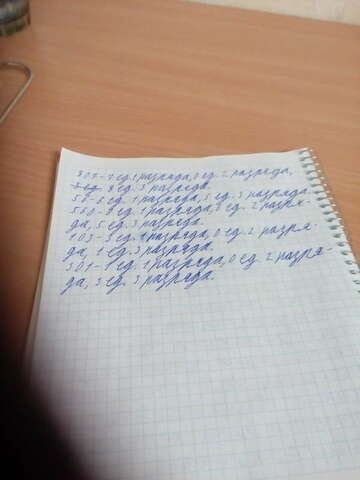 807-7 ед. 1 разряда, 0 ед. 2 разряда,
8 ед. 3 разряда.
50-0 ед. 1 разряда, 5 ед. 3 разряда.
500-0 ед. 1 разряда, 0 ед. 2 разря-
да, 5 ед. 3 разряда.
103-3 ед. 1 разряда, 0 ед. 2 разря-
да, 1 ед. 3 разряда.
301-1 ед. 1 разряда, 0 ед. 2 разря-
да, 3 ед. 3 разряда.